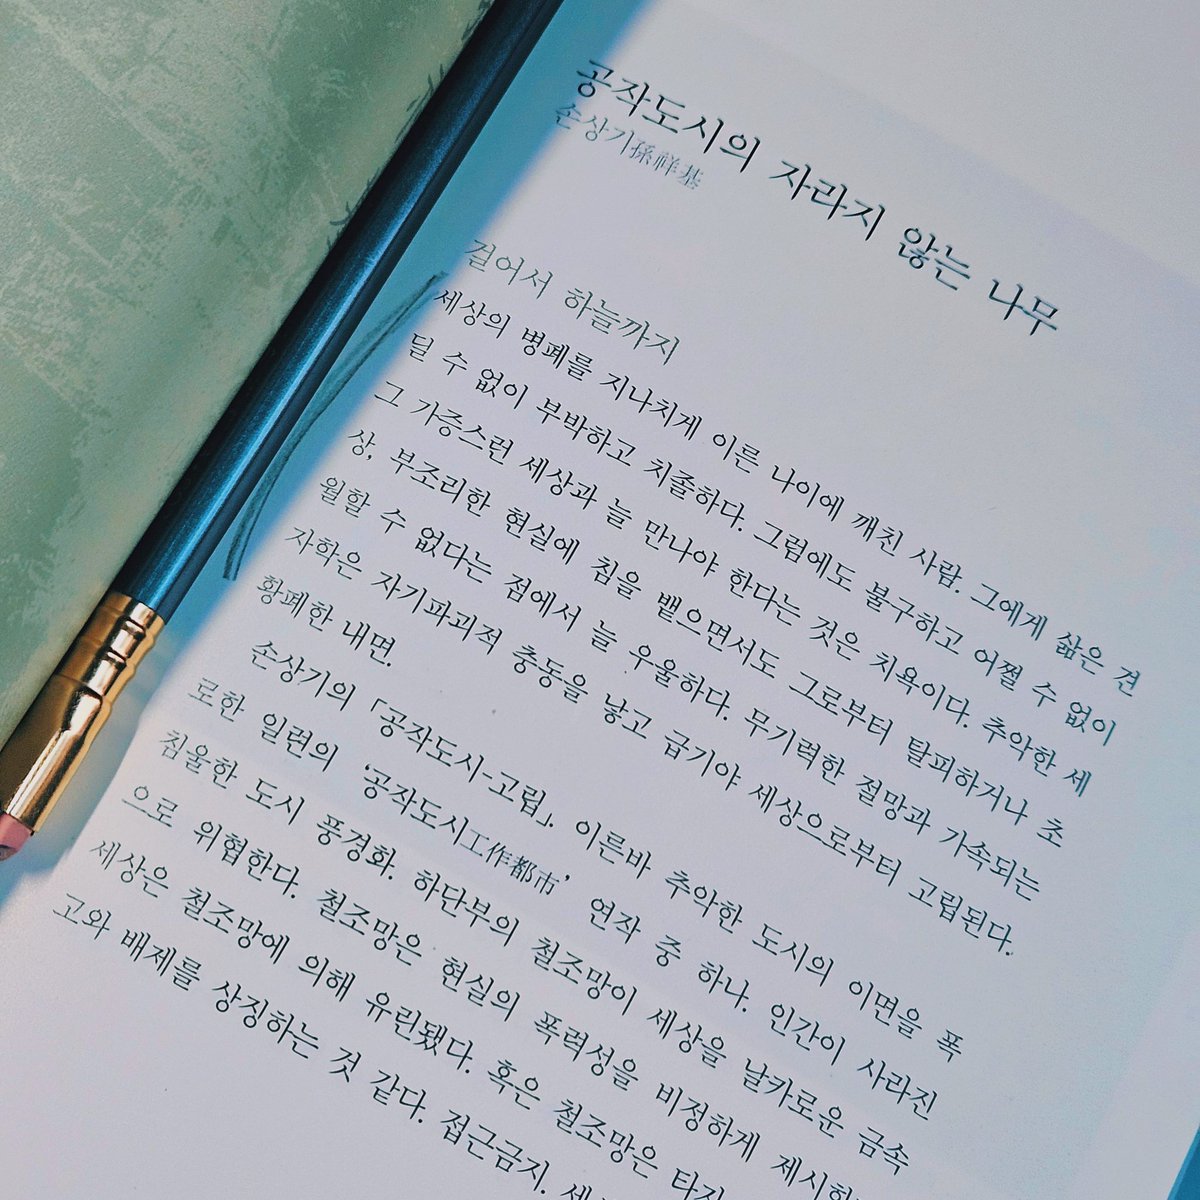 공작도시의 자라지 않는 나무
손상기孫祥基
걸어서 하늘까지
세상의 병폐를 지나치게 이른 나이에 깨친 사람. 그에게 삶은 견
딜 수 없이 부박하고 치졸하다. 그럼에도 불구하고 어쩔 수 없이
그 가증스런 세상과 늘 만나야 한다는 것은 치욕이다. 추악한 세
상, 부조리한 현실에 침을 뱉으면서도 그로부터 탈피하거나 초
월할 수 없다는 점에서 늘 우울하다. 무기력한 절망과 가속되는
자학은 자기파괴적 충동을 낳고 급기야 세상으로부터 고립된다.
황폐한 내면.
손상기의 「공작도시-고립」. 이른바 추악한 도시의 이면을 폭
로한 일련의 ‘공작도시工作都市’ 연작 중 하나. 인간이 사라진
침울한 도시 풍경화. 하단부의 철조망이 세상을 날카로운 금속
으로 위협한다. 철조망은 현실의 폭력성을 비정하게 제시한
세상은 철조망에 의해 유린됐다. 혹은 철조망은
고와 배제를 상징하는 것 같다. 접근금지.